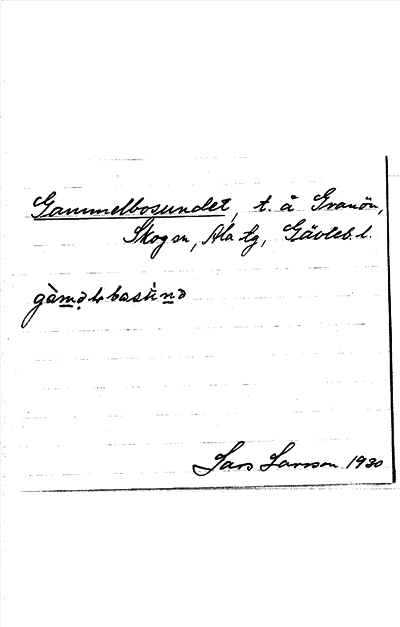 Gammelbosundet, t. å Granön,
Skog sn, Ala tg, Gävleb. l.
gàməḷbosùnə
Lars Larsson 1930